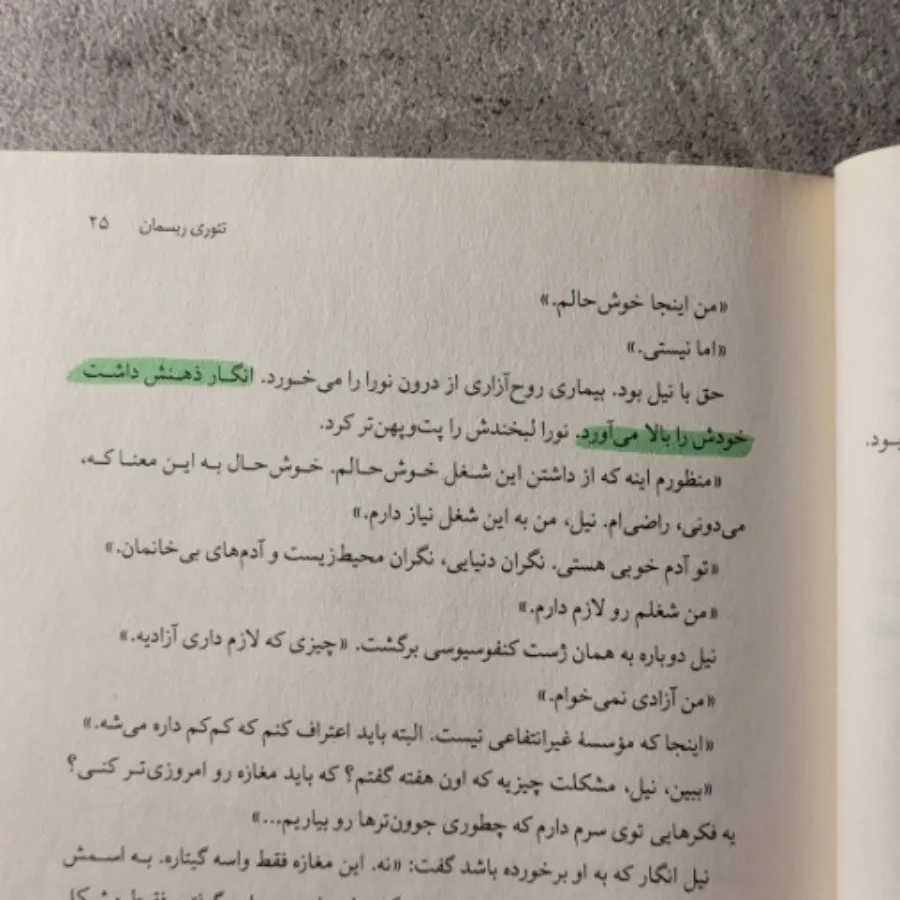 تئوری ریسمان ۲۵
«من اینجا خوش‌حالم.»
«اما نیستی.»
حق با نیل بود. بیماری روح‌آزاری از درون نورا را می‌خورد. انگار ذهنش داشت
خودش را بالا می‌آورد. نورا لبخندش را پت‌وپهن‌تر کرد.
«منظورم اینه که از داشتن این شغل خوش‌حالم. خوش‌حال به این معنا که،
می‌دونی، راضی‌ام. نیل، من به این شغل نیاز دارم.»
«تو آدم خوبی هستی. نگران دنیایی، نگران محیط‌زیست و آدم‌های بی‌خانمان.»
«من شغلم رو لازم دارم.»
نیل دوباره به همان ژست کنفوسیوسی برگشت. «چیزی که لازم داری آزادیه.»
«من آزادی نمی‌خوام.»
«اینجا که مؤسسهٔ غیرانتفاعی نیست. البته باید اعتراف کنم که کم‌کم داره می‌شه.»
«ببین، نیل، مشکلت چیزیه که اون هفته گفتم؟ که باید مغازه رو امروزی‌تر کنی؟
یه فکرهایی توی سرم دارم که چطوری جوون‌ترها رو بیاریم...»
نیل انگار که به او برخورده باشد گفت: «نه. این مغازه فقط واسه گیتاره. به اسمش
بود.